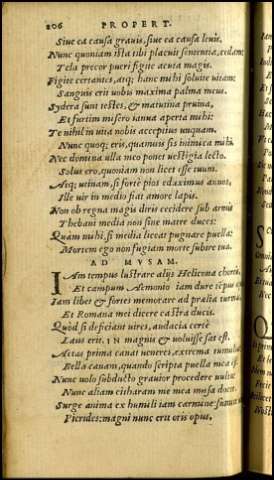 206 PROPERT.
Siue ea causa grauis, siue ea causa leuis.
Nunc quoniam ista tibi placuit sententia, cedam:
Tela precor pueri figite acuta magis.
Figite certantes, atq; hanc mihi soluite uitam:
Sanguis erit uobis maxima palma meus.
Sydera sunt testes, & matutina pruina,
Et furtim misero ianua aperta mihi:
Te nihil in uita nobis acceptius unquam.
Nunc quoq; eris, quamuis sis inimica mihi.
Nec domina ulla meo ponet uestigia lecto.
Solus ero, quoniam non licet esse tuum.
Atq; utinam, si forte pios eduximus annos,
Ille uir in medio fiat amore lapis.
Non ob regna magis diris cecidere sub armis
Thebani media non sine matre duces:
Quam mihi, si media liceat pugnare puella:
Mortem ego non fugiam morte subire tua.
AD MVSAM.
IAm tempus lustrare alijs Helicona choreis,
Et campum Aemonio iam dare tempus
Iam libet & fortes memorare ad praelia turmas
Et Romana mei dicere castra ducis.
Quòd si deficiant uires, audacia certè
Laus erit. IN magnis & uoluisse sat est.
Aetas prima canat ueneres, extrema tumultus
Bella canam, quando scripta puella mea est.
Nunc uolo subducto grauior procedere uultu:
Nunc aliam citharam me mea musa docet.
Surge anima ex humili iam carmine:
Pierides: magni nunc erit oris opus.